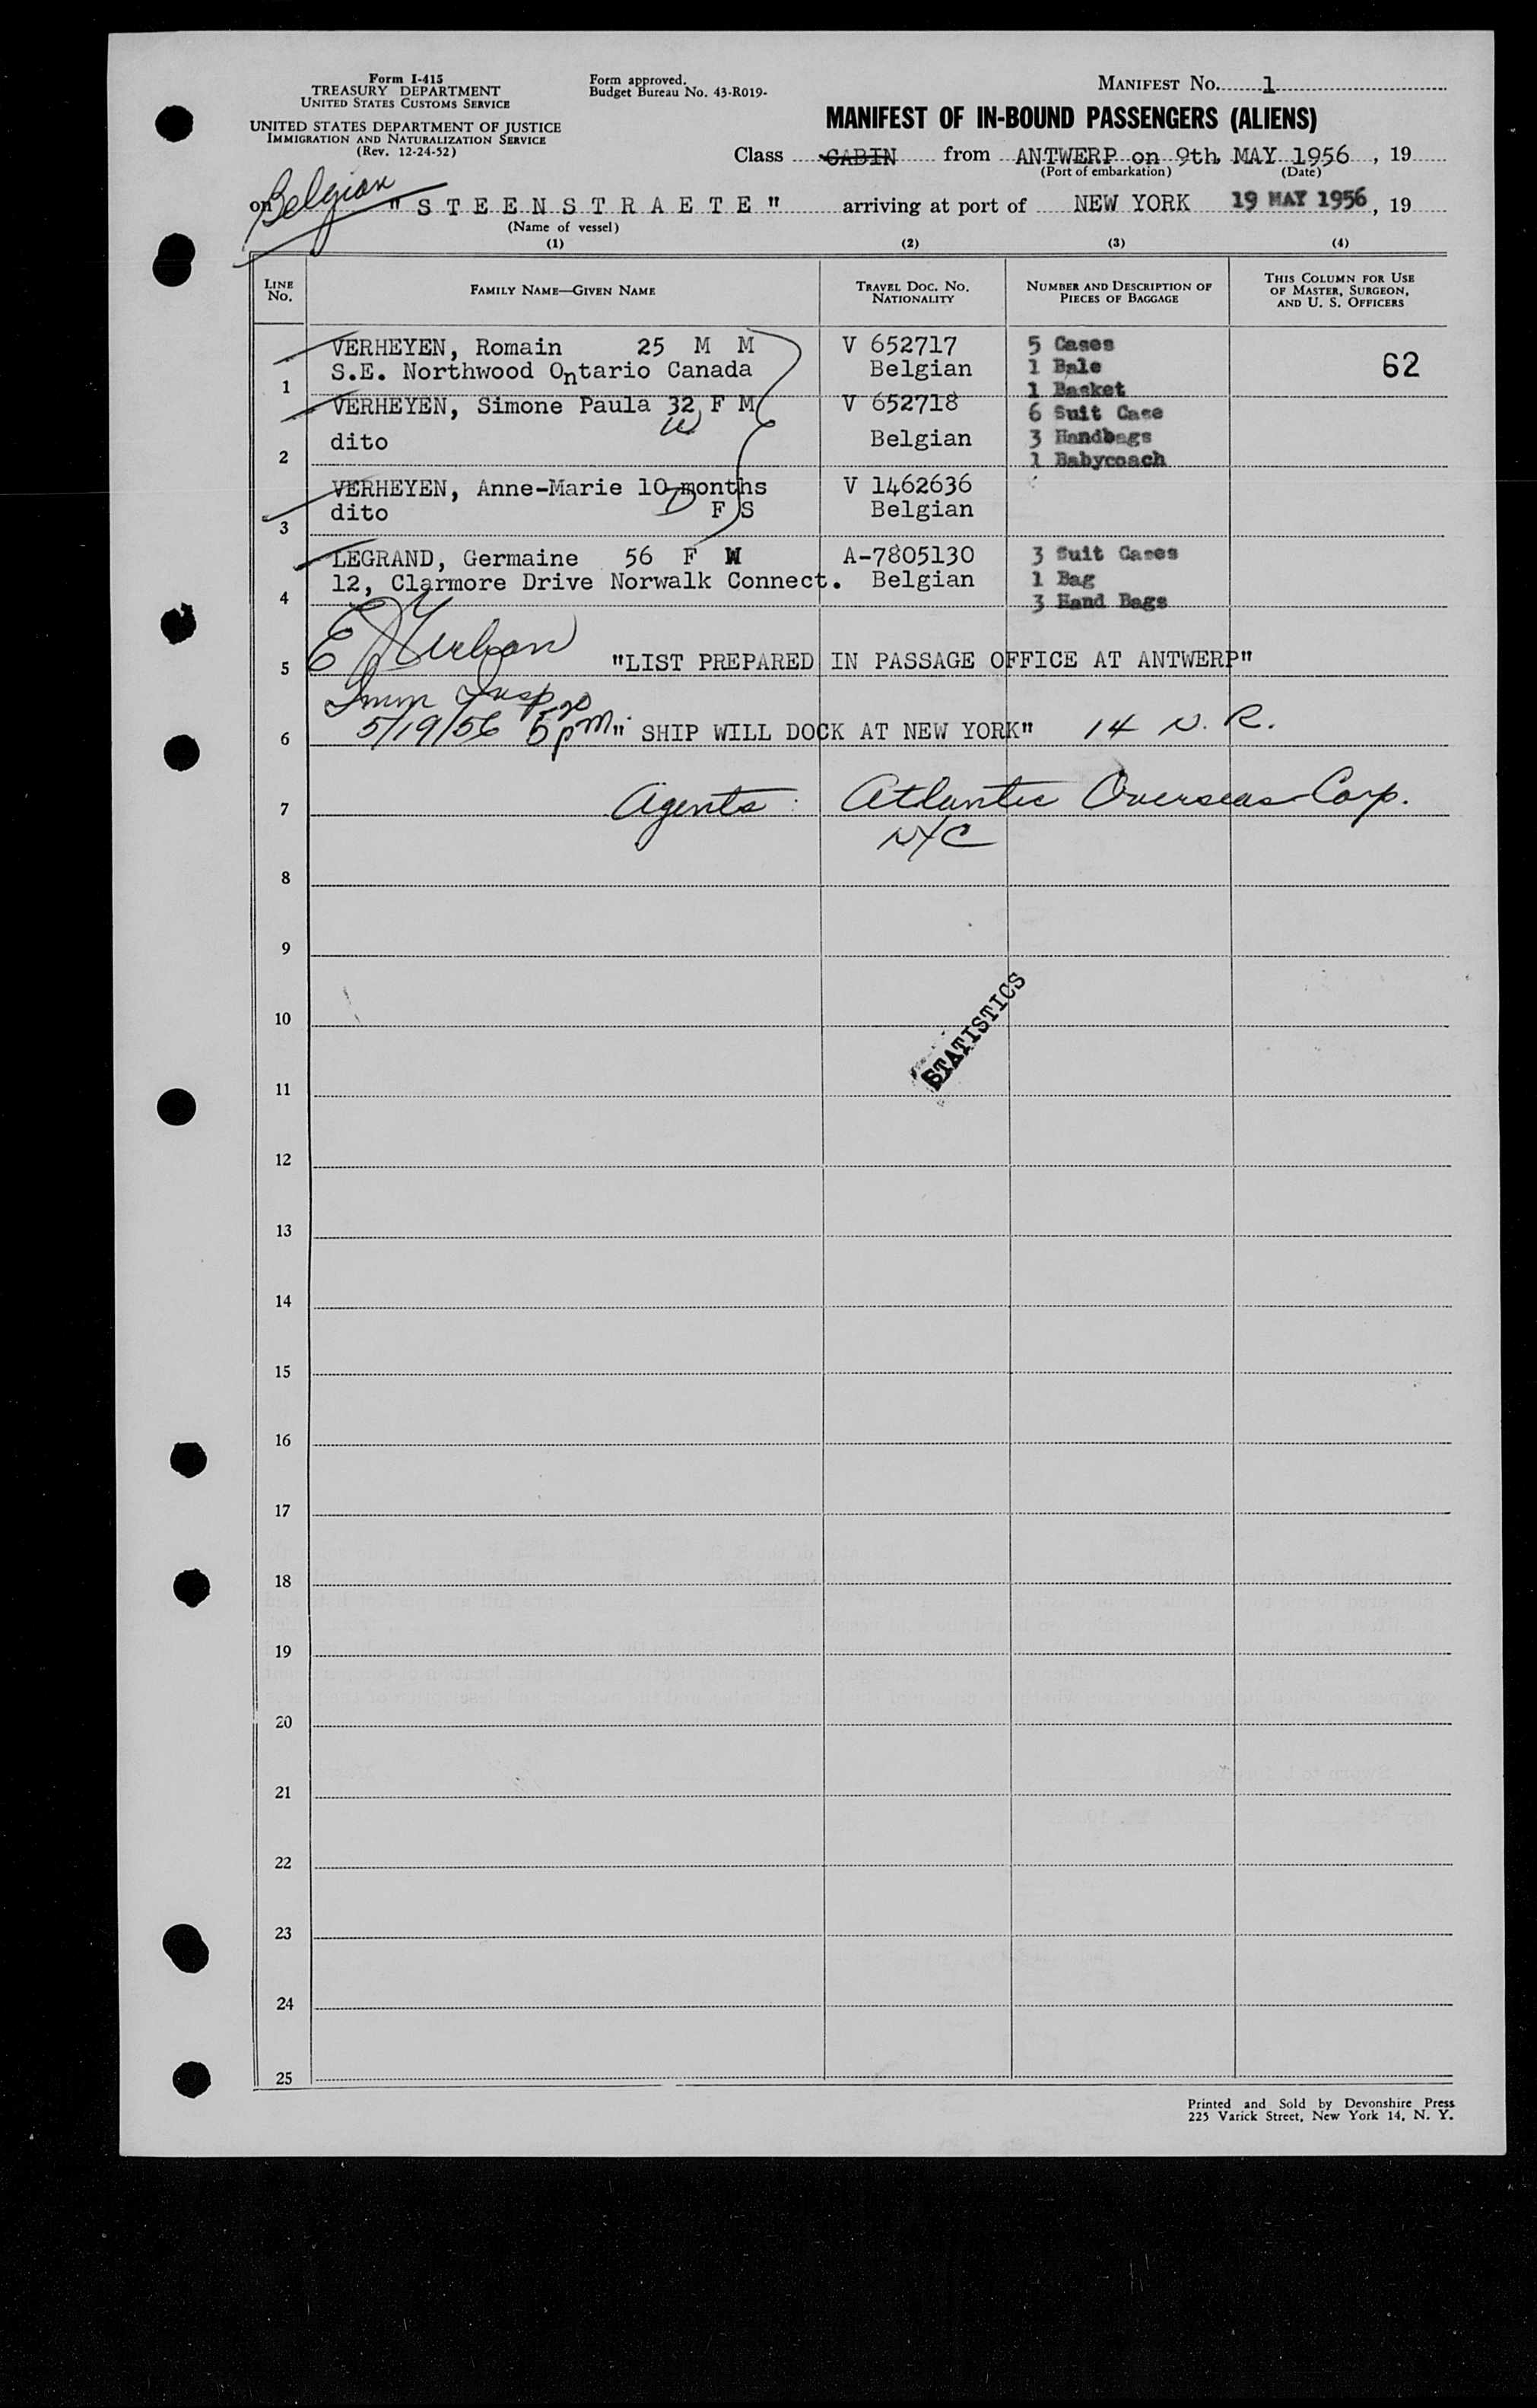 Form I-415
TREASURY DEPARTMENT
UNITED STATES CUSTOMS SERVICE
UNITED STATES DEPARTMENT OF JUSTICE
IMMIGRATION AND NATURALIZATION SERVICE
(Rev. 12-24-52)
Form approved.
Budget Bureau No. 43-R019-
MANIFEST No. 1
MANIFEST OF IN-BOUND PASSENGERS (ALIENS)
Class CABIN from ANTWERP on 9th, MAY 1956, 19
(Port of embarkation) (Date)
Belgian
on "STEENSTRAETE" arriving at port of NEW YORK 19 MAY 1956, 19
(Name of vessel)
(1) (2) (3) (4)
LINE No. FAMILY NAME—GIVEN NAME TRAVEL DOC. NO. NATIONALITY NUMBER AND DESCRIPTION OF PIECES OF BAGGAGE THIS COLUMN FOR USE OF MASTER, SURGEON, AND U. S. OFFICERS
VERHEYEN, Romain 25 M M V 652717 5 Cases
S.E. Northwood Ontario Canada Belgian 1 Bale 62
1 1 Basket
VERHEYEN, Simone Paula 32 F M V 652718 6 Suit Case
W
dito Belgian 3 Handbags
2 1 Babycoach
VERHEYEN, Anne-Marie 10 months V 1462636
D
dito F S Belgian
3
LEGRAND, Germaine 56 F W A-7805130 3 Suit Cases
12, Clarmore Drive Norwalk Connect. Belgian 1 Bag
4 3 Hand Bags
5 "LIST PREPARED IN PASSAGE OFFICE AT ANTWERP"
Imm Insp
5/19/56 5 pm
6 " SHIP WILL DOCK AT NEW YORK" 14 N. R.
7 Agents: Atlantic Overseas Corp.
NYC
8
9
10
STATISTICS
11
12
13
14
15
16
17
18
19
20
21
22
23
24
25
Printed and Sold by Devonshire Press
225 Varick Street, New York 14, N. Y.